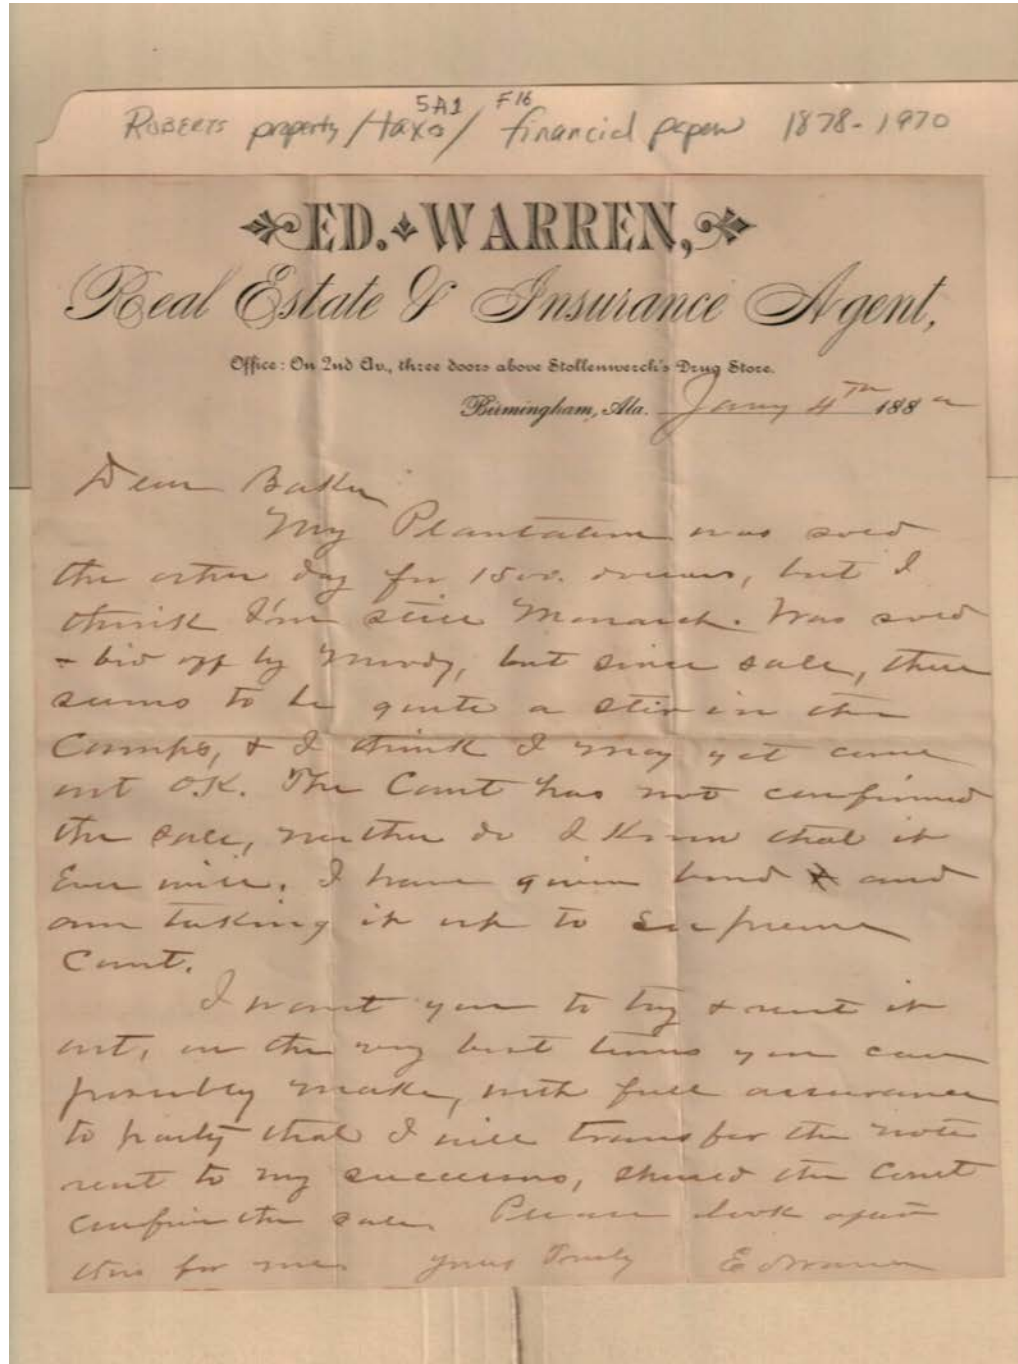 5A1 F16
ROBERTS property / taxes / financial papers 1878-1970
ED. WARREN,
Real Estate & Insurance Agent,
Office: On 2nd Av., three doors above Stollenwerck's Drug Store.
Birmingham, Ala. Jany 4th 188
Dear Baker
My Plantation was sold
the other day for 1500. dollars, but I
think I'm still Monarch. Was sold
& bid off by Moody, but since sale, there
seems to be quite a stir in the
Camps, & I think I may yet come
out O.K. The Court has not confirmed
the sale, neither do I Know that it
Ever will. I have given bond and
am taking it up to Supreme
Court.
I want you to try & rent it
out, on the very best terms you can
possibly make, with full assurance
to party that I will transfer the note
rent to my successors, should the Court
confirm the sale. Please look after
this for me. Yours Truly Ed Warren